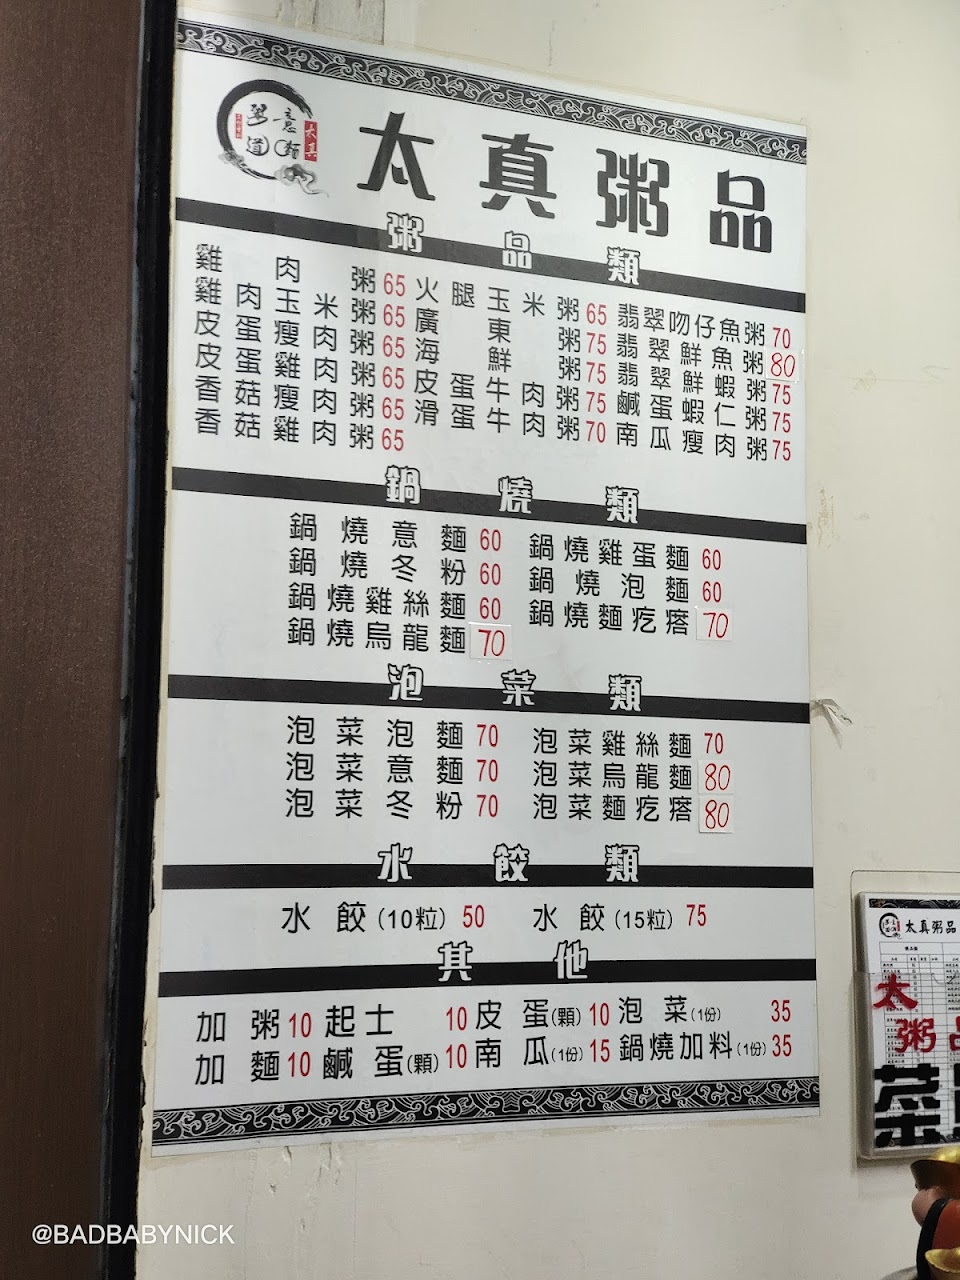 粥意
道麵
太真
太真粥品
粥品類
雞肉粥 65 火腿玉米粥 65 翡翠吻仔魚粥 70
雞肉玉米粥 65 廣東粥 75 翡翠鮮魚粥 80
皮蛋瘦肉粥 65 海鮮粥 75 翡翠鮮蝦粥 75
皮蛋雞肉粥 65 皮蛋牛肉粥 75 鹹蛋蝦仁粥 75
香菇瘦肉粥 65 滑蛋牛肉粥 70 南瓜瘦肉粥 75
香菇雞肉粥 65
鍋燒類
鍋燒意麵 60 鍋燒雞蛋麵 60
鍋燒冬粉 60 鍋燒泡麵 60
鍋燒雞絲麵 60 鍋燒麵疙瘩 70
鍋燒烏龍麵 70
泡菜類
泡菜泡麵 70 泡菜雞絲麵 70
泡菜意麵 70 泡菜烏龍麵 80
泡菜冬粉 70 泡菜麵疙瘩 80
水餃類
水餃(10粒) 50 水餃(15粒) 75
其他
加粥 10 起士 10 皮蛋(顆) 10 泡菜(1份) 35
加麵 10 鹹蛋(顆) 10 南瓜(1份) 15 鍋燒加料(1份) 35
太真粥品
太
粥品
菜
@BADBABYNICK